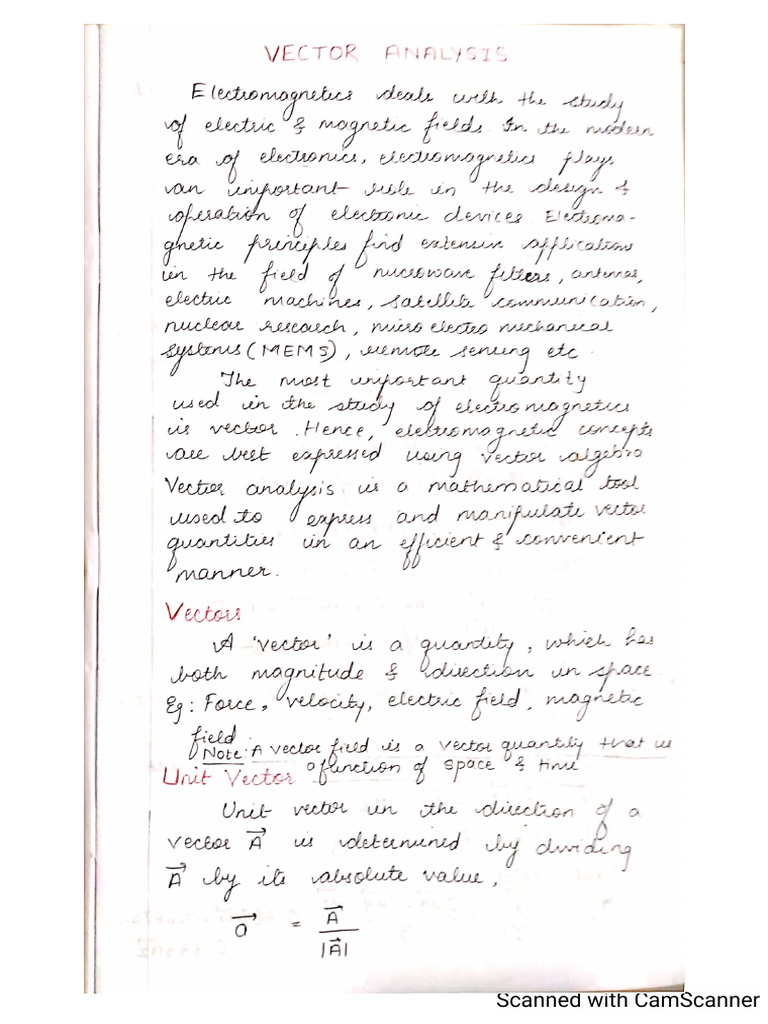 VECTOR ANALYSIS
Electromagnetics deals with the study
of electric & magnetic fields. In the modern
era of electronics, electromagnetics plays
an important role in the design &
operation of electronic devices Electroma-
gnetic principles find extensive applications
in the field of microwave filters, antennas,
electric machines, satellite communication,
nuclear research, micro electro mechanical
systems (MEMS), remote sensing etc.
The most important quantity
used in the study of electromagnetics
is vector. Hence, electromagnetic concepts
are best expressed using vector algebra
Vector analysis is a mathematical tool
used to express and manipulate vector
quantities in an efficient & convenient
manner.
Vectors
A 'vector' is a quantity, which has
both magnitude & direction in space.
Eg: Force, velocity, electric field, magnetic
field
Note: A vector field is a vector quantity that is
a function of space & time
Unit Vector
Unit vector in the direction of a
vector A⃗ is determined by dividing
A⃗ by its absolute value,
a⃗ = A⃗ / |A⃗|
Scanned with CamScanner